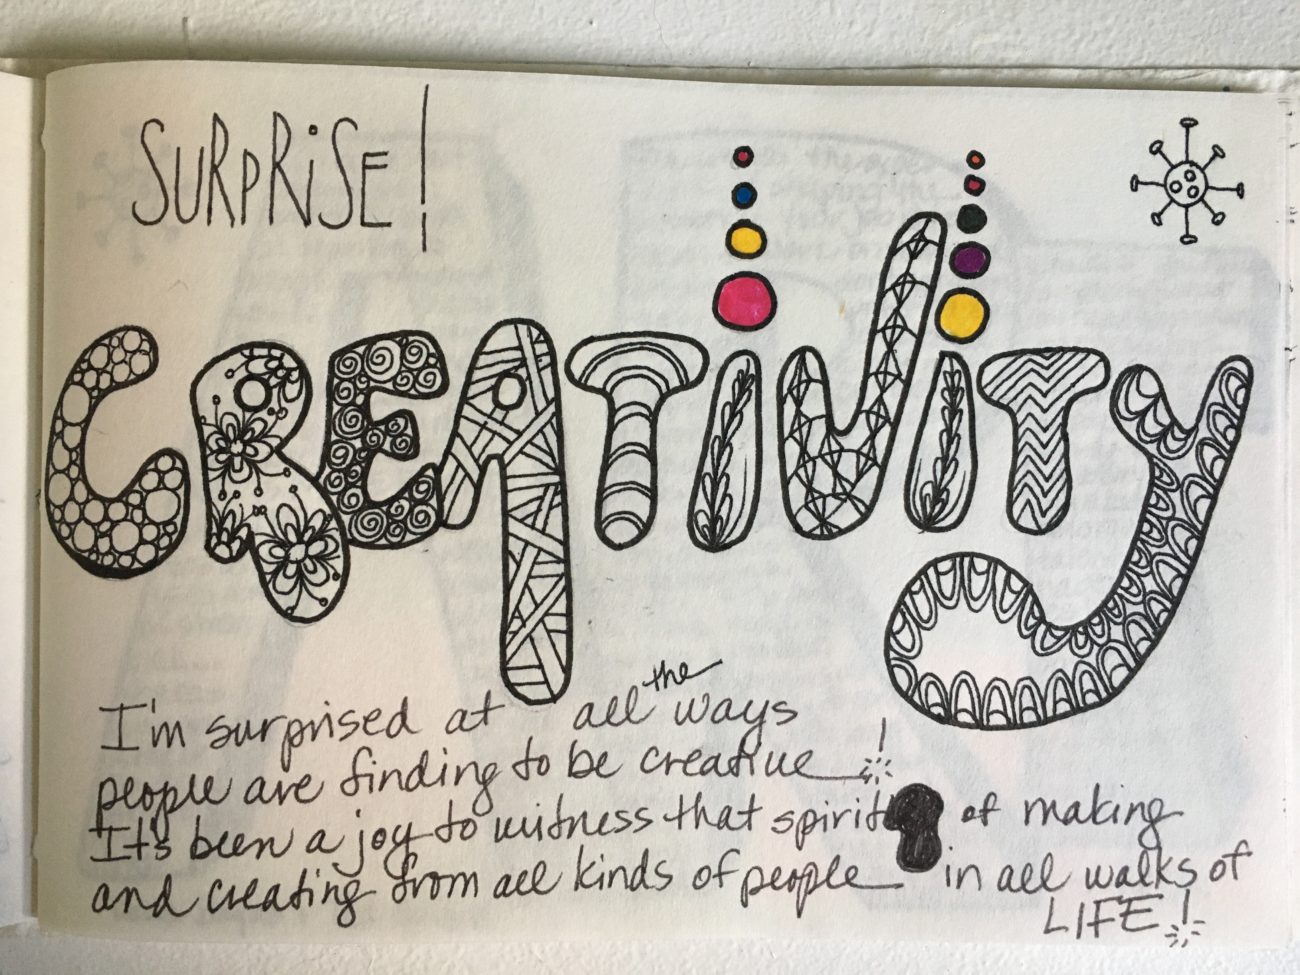 SURPRiSE!
CREATiViTy
I'm surprised at all the ways
people are finding to be creative!
It's been a joy to witness that spirit of making
and creating from all kinds of people in all walks of
LIFE!